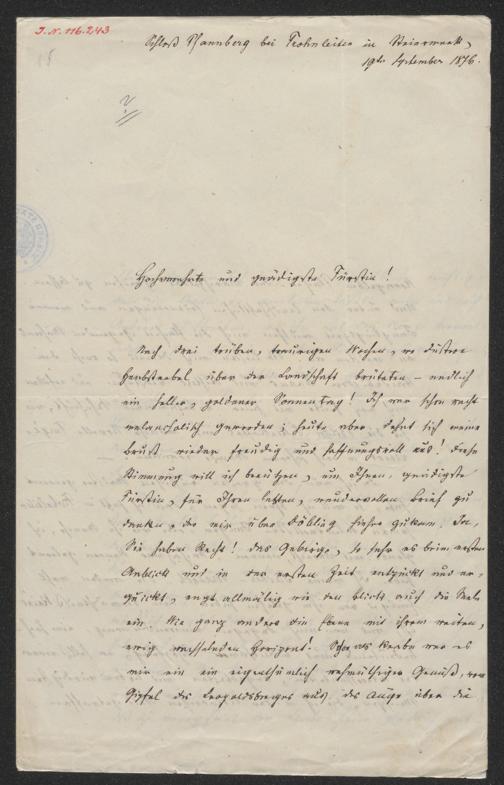 I.N. 116.243
Schloß Pfannberg bei Frohnleiten in Steiermark,
19ten September 1876.
Hochverehrte und gnädigste Fürstin!
Nach drei trüben, traurigen Wochen, wo düstere
Herbstnebel über der Landschaft brüteten – endlich
ein heller, goldener Sonnentag! Ich war schon recht
melancholisch geworden; heute aber dehnt sich meine
Brust wieder freudig und hoffnungsvoll aus! Diese
Stimmung will ich benützen, um Ihnen, gnädigste
Fürstin, für Ihren letzten, wundervollen Brief zu
danken, der mir über Döbling hieher zukam. Ja,
Sie haben Recht! Das Gebirge, so sehr es beim ersten
Anblick und in der ersten Zeit entzückt und er-
quickt, engt allmälig wie den Blick auch die Seele
ein. Wie ganz anders die Ebene mit ihrem weiten,
ewig wechselnden Horizont! Schon als Knabe war es
mir ein eigenthümlich wehmüthiger Genuß, vom
Gipfel des Leopoldsberges aus, das Auge über die